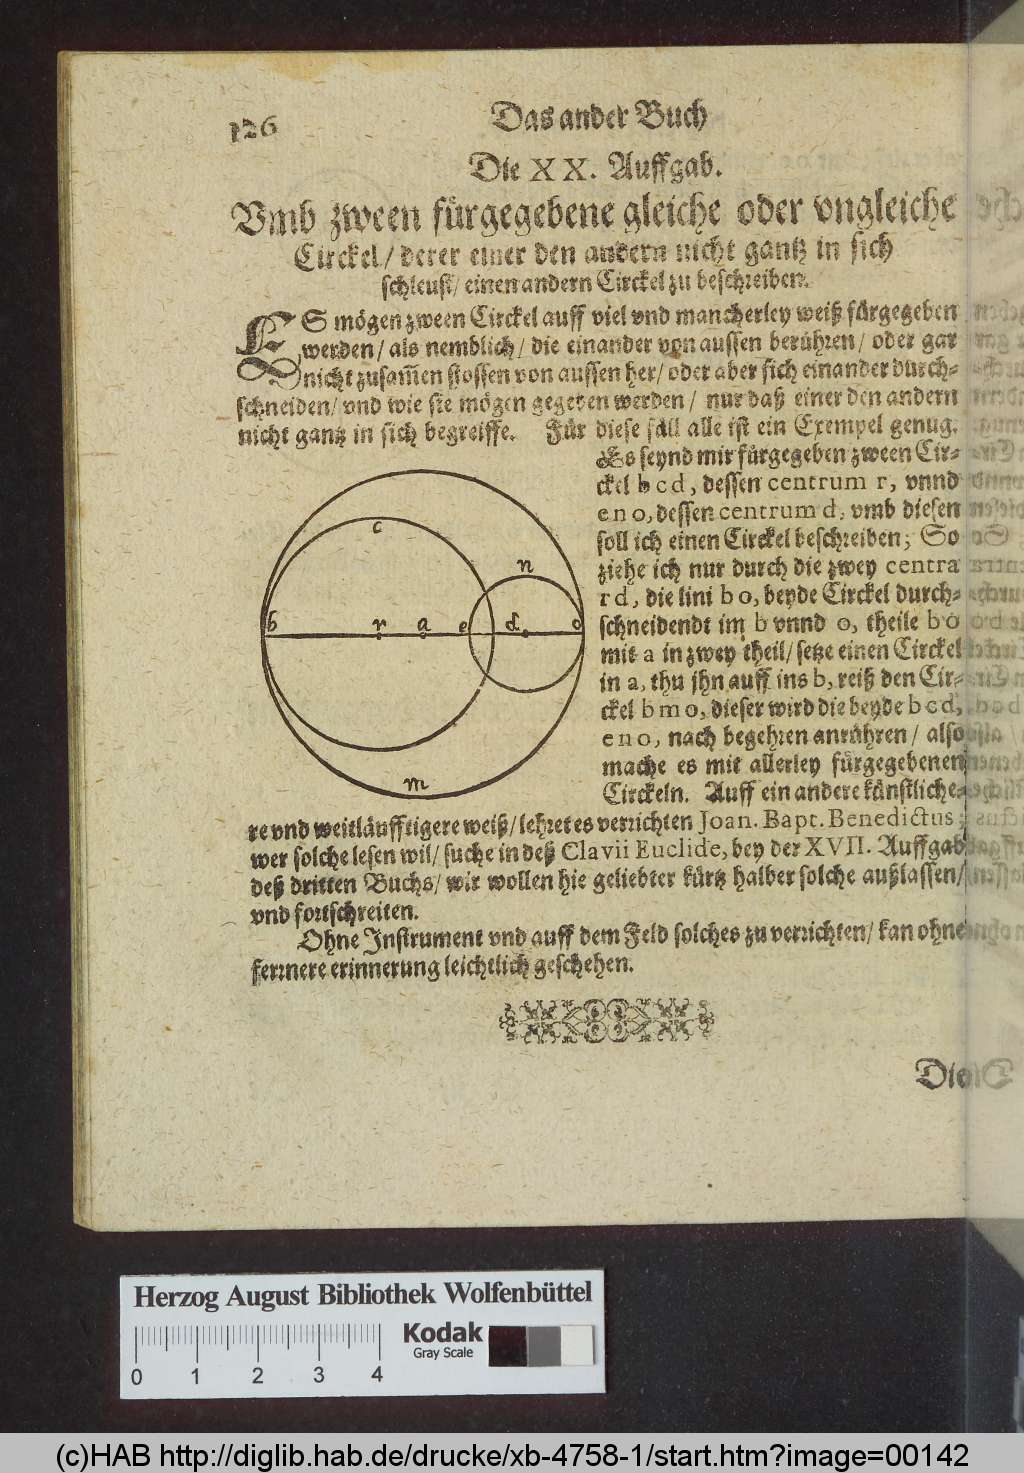 126
Das ander Buch
Die XX. Auffgab.
Vmb zween fürgegebene gleiche oder vngleiche
Circkel / derer einer den andern nicht gantz in sich
schleust / einen andern Circkel zu beschreiben.
ES mögen zween Circkel auff viel vnd mancherley weiß fürgegeben
werden / als nemblich / die einander von aussen berühren / oder gar
nicht zusam̃en stossen von aussen her / oder aber sich einander durch-
schneiden / vnd wie sie mögen gegeben werden / nur daß einer den andern
nicht gantz in sich begreiffe. Für diese fäll alle ist ein Exempel genug.
Es seynd mir fürgegeben zween Cir-
ckel bcd, dessen centrum r, vnnd
eno, dessen centrum d, vmb diesen
soll ich einen Circkel beschreiben; So
ziehe ich nur durch die zwey centra
rd, die lini bo, beyde Circkel durch-
schneidendt im b vnnd o, theile bo
mit a in zwey theil / setze einen Circkel
in a, thu jhn auff ins b, reiß den Cir-
ckel bmo, dieser wird die beyde bcd,
eno, nach begehren anrühren / also
mache es mit allerley fürgegebenen
Circkeln. Auff ein andere künstliche-
re vnd weitläufftigere weiß / lehret es verrichten Joan. Bapt. Benedictus;
wer solche lesen wil / suche in deß Clavii Euclide, bey der XVII. Auffgab
deß dritten Buchs / wir wollen hie geliebter kürtz halber solche außlassen /
vnd fortschreiten.
Ohne Instrument vnd auff dem Feld solches zu verrichten / kan ohne
fernnere erinnerung leichtlich geschehen.
c
n
b r a e d o
m
Die
Herzog August Bibliothek Wolfenbüttel
Kodak
Gray Scale
0 1 2 3 4
(c)HAB http://diglib.hab.de/drucke/xb-4758-1/start.htm?image=00142